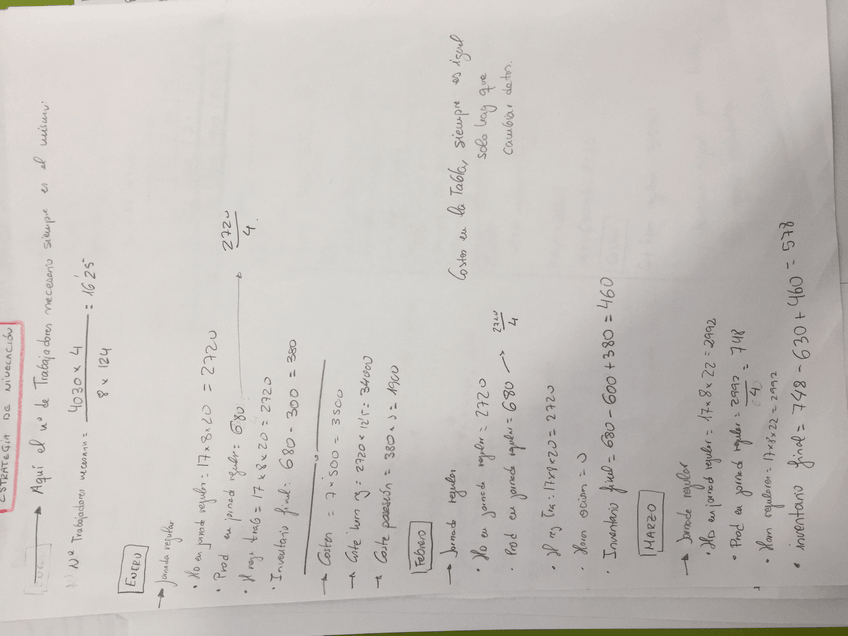 ESTRATEGIA DE NIVELACIÓN
→ Aquí el nº de Trabajadores necesario siempre es el mismo:
Nº Trabajadores necesario = 4030 x 4 / 8 x 124 = 16'25
ENERO
→ Jornada regular
• Ho en jornada regular = 17 x 8 x 20 = 2720
• Prod en jornada regular = 680 → 2720 / 4
• H reg trab = 17 x 8 x 20 = 2720
• Inventario final = 680 - 300 = 380
→ Costes = 7 x 500 = 3500
→ Coste hora rg = 2720 x 12'5 = 34000
→ Coste posesión = 380 x 5 = 1900
Febrero
→ Jornada regular
Costes en la Tabla, siempre es igual
solo hay que
cambiar datos.
• Ho en jornada regular = 2720
• Prod en jornada regular = 680 → 2720 / 4
• H reg Tra = 17 x 8 x 20 = 2720
• Horas ociosas = 0
• Inventario final = 680 - 600 + 380 = 460
MARZO
→ Jornada regular
• Ho en jornada regular = 17 x 8 x 22 = 2992
• Prod en jornada regular = 2992 / 4 = 748
• Horas regulares = 17 x 8 x 22 = 2992
• inventario final = 748 - 630 + 460 = 578